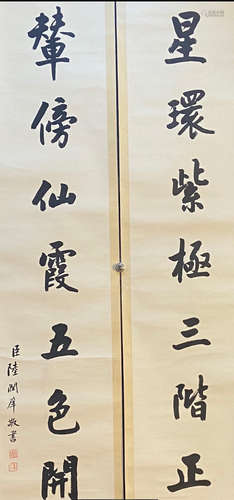 星環紫極三階正
輦傍仙霞五色開
臣陸潤庠敬書